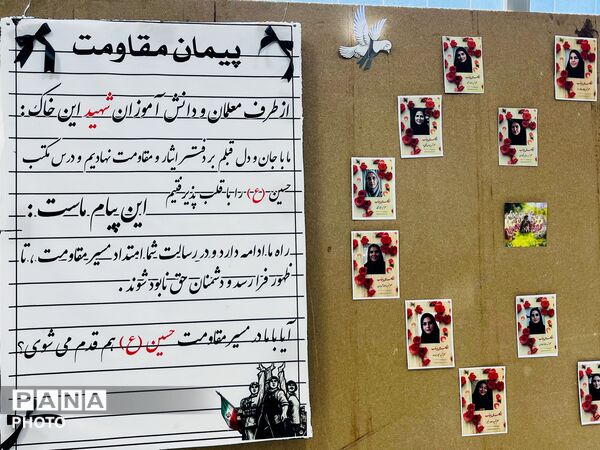 پیمان مقاومت
از طرف معلمان و دانش آموزان شهید این خاک :
ما با جان و دل قبلم بر دفتر ایثار و مقاومت نهادیم و درس مکتب
حسین (ع) را با قلب پذیرفتیم
این پیام ماست :
راه ما ادامه دارد و در رسالت شما امتداد مسیر مقاومت ، تا
ظهور فرا رسد و دشمنان حق نابود شوند .
آیا با ما در مسیر مقاومت حسین (ع) هم قدم می شوی؟
PANA
PHOTO